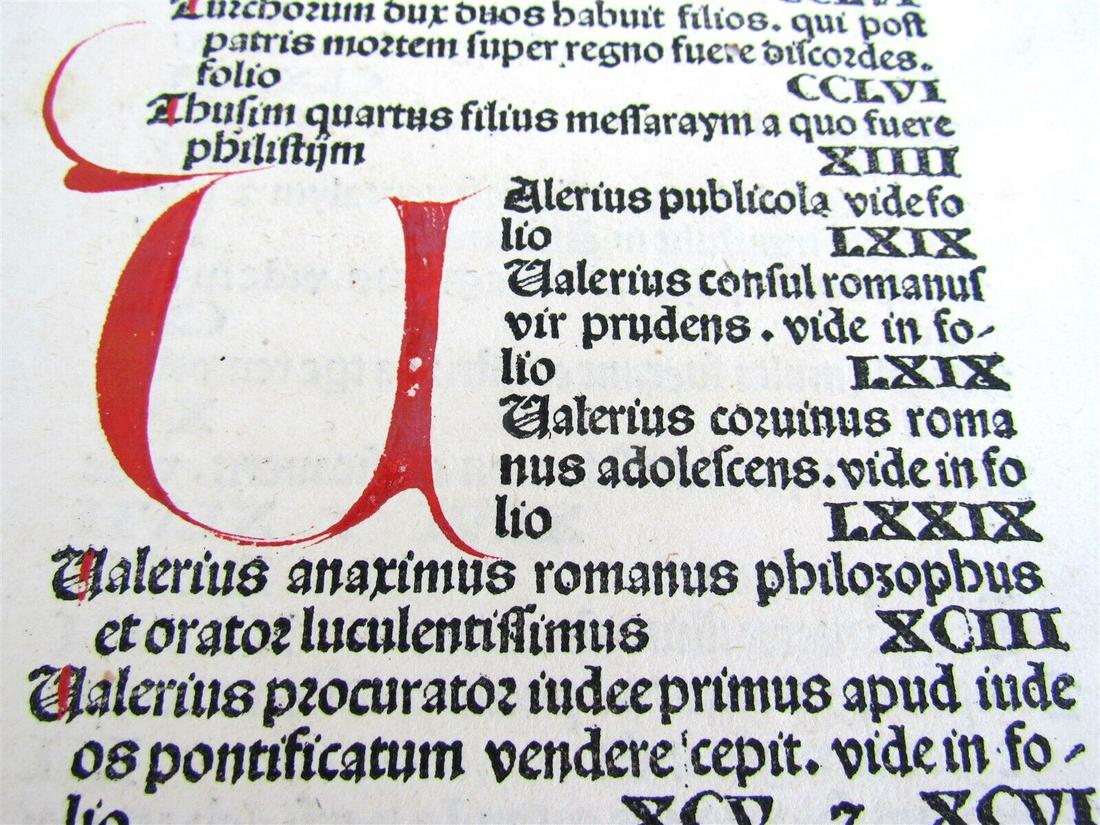 Turchorum dux duos habuit filios. qui post
patris mortem super regno fuere discordes.
folio CCLVI
Thusim quartus filius messaraym a quo fuere
philistijm XIIII
UAlerius publicola vide fo
lio LXIX
Ualerius consul romanus
vir prudens. vide in fo-
lio LXIX
Ualerius coruinus roma
nus adolescens. vide in fo
lio LXXIX
Ualerius anaximus romanus philozophus
et orator luculentissimus XCIII
Ualerius procurator iudee primus apud iude
os pontificatum vendere cepit. vide in fo-
lio XCV ⁊ XCVI